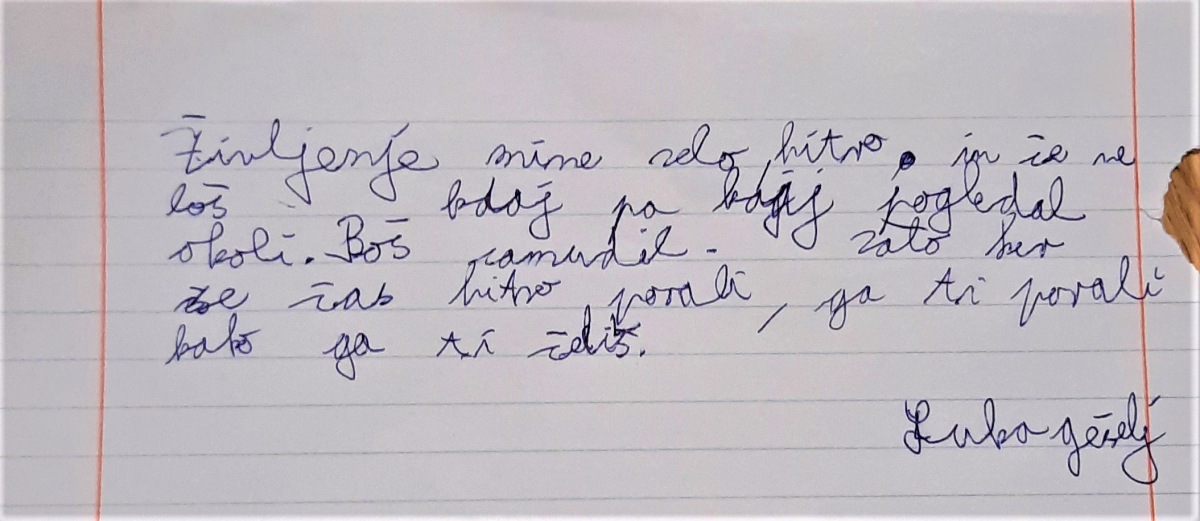 Življenje mine zelo hitro. in če ne
boš kdaj pa kdaj pogledal
okoli. Boš zamudil. zato ker
že čas hitro porabi, ga ti porabi
kako ga ti želiš.
Luka